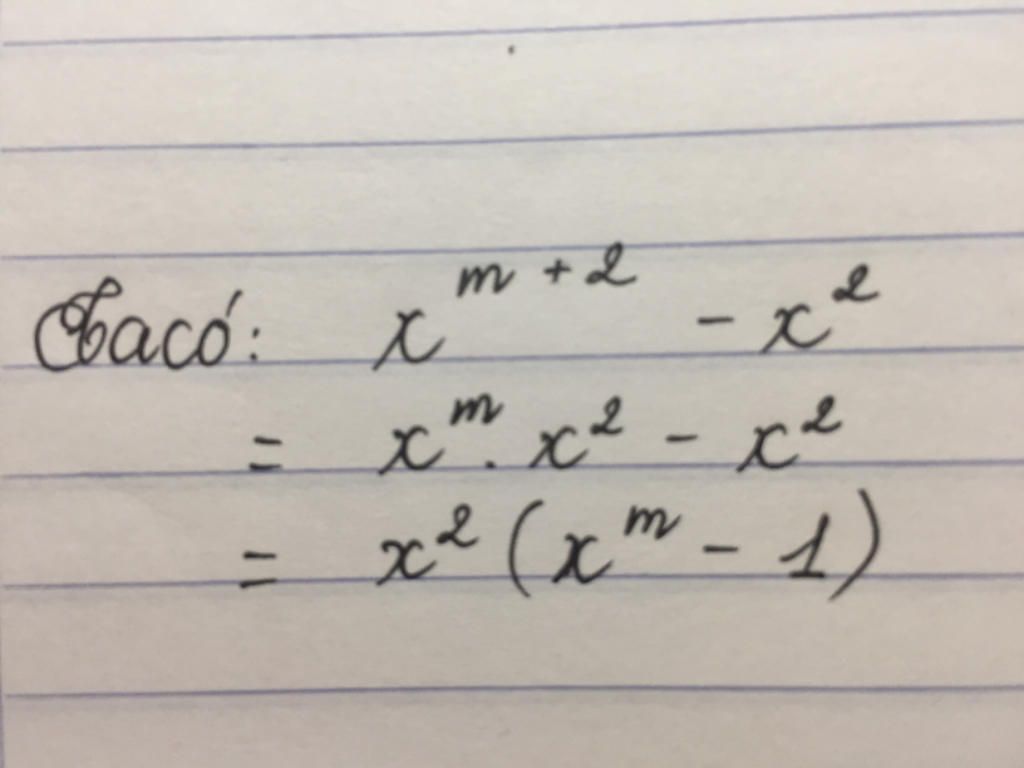 Ta có: x^{m+2} - x^2
= x^m . x^2 - x^2
= x^2 (x^m - 1)